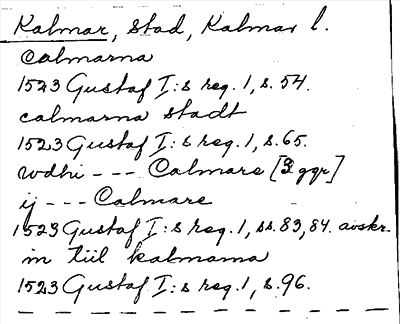 Kalmar, stad, Kalmar l.
Calmarna
1523 Gustaf I:s reg. 1, s. 54.
calmarna stadt
1523 Gustaf I:s reg. 1, s. 65.
wdhi --- Calmare [3 ggr]
ij --- Calmare
1523 Gustaf I:s reg. 1, ss. 83, 84. avskr.
in tiil kalmarna
1523 Gustaf I:s reg. 1, s. 96.